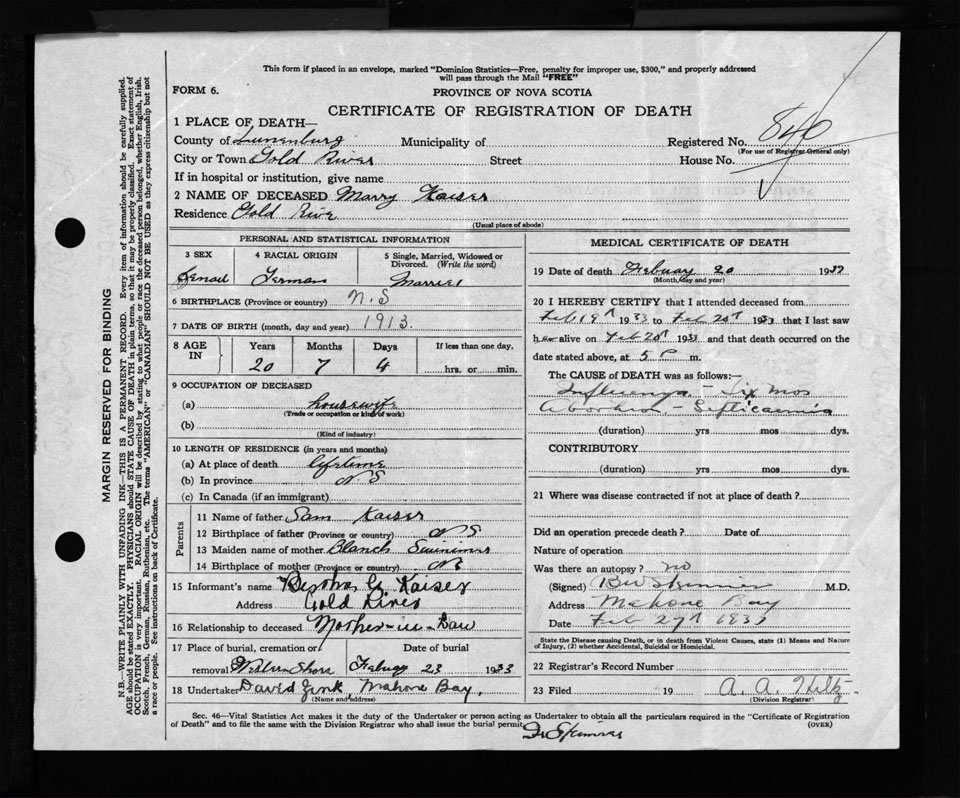 This form if placed in an envelope, marked "Dominion Statistics—Free, penalty for improper use, $300," and properly addressed
will pass through the Mail "FREE"
FORM 6.
PROVINCE OF NOVA SCOTIA
CERTIFICATE OF REGISTRATION OF DEATH
1 PLACE OF DEATH—
County of Lunenburg Municipality of Registered No. 840
(For use of Registrar General only)
City or Town Gold River Street House No.
If in hospital or institution, give name
2 NAME OF DECEASED Marry Kaiser
Residence Gold Rive
(Usual place of abode)
PERSONAL AND STATISTICAL INFORMATION
3 SEX 4 RACIAL ORIGIN 5 Single, Married, Widowed or
Divorced. (Write the word)
German Married
6 BIRTHPLACE (Province or country) N.S
7 DATE OF BIRTH (month, day and year) 1913.
8 AGE IN Years Months Days If less than one day,
20 7 4 hrs. or min.
9 OCCUPATION OF DECEASED
(a) housewife
(Trade or occupation or kind of work)
(b)
(Kind of industry)
10 LENGTH OF RESIDENCE (in years and months)
(a) At place of death lifetime
(b) In province N S
(c) In Canada (if an immigrant)
Parents
11 Name of father Sam Kaiser
12 Birthplace of father (Province or country) N S
13 Maiden name of mother Blanch
14 Birthplace of mother (Province or country)
15 Informant's name Bertha G Kaiser
Address Gold River
16 Relationship to deceased Mother-in-Law
17 Place of burial, cremation or Date of burial
removal Western Shore Febuay 23 1933
18 Undertaker David Zink, Mahone Bay.
(Name and address)
MEDICAL CERTIFICATE OF DEATH
19 Date of death Febuary 20 19
(Month, day and year)
20 I HEREBY CERTIFY that I attended deceased from
Feb 19th 1933 to Feb 20th 1933 that I last saw
h alive on Feb 20th 1933 and that death occurred on the
date stated above, at 5 P m.
The CAUSE of DEATH was as follows:—
Influenza - Six mos
abortion - Septicaemia
(duration) yrs mos dys.
CONTRIBUTORY
(duration) yrs mos dys.
21 Where was disease contracted if not at place of death?
Did an operation precede death? Date of
Nature of operation
Was there an autopsy? no
(Signed) M.D.
Address Mahone Bay
Date Feb 27th
State the Disease causing Death, or in death from Violent Causes, state (1) Means and Nature
of Injury, (2) whether Accidental, Suicidal or Homicidal.
22 Registrar's Record Number
23 Filed 19 A. A. Hiltz
(Division Registrar)
Sec. 46—Vital Statistics Act makes it the duty of the Undertaker or person acting as Undertaker to obtain all the particulars required in the "Certificate of Registration
of Death" and to file the same with the Division Registrar who shall issue the burial permit. (OVER)
MARGIN RESERVED FOR BINDING
N.B.—WRITE PLAINLY WITH UNFADING INK—THIS IS A PERMANENT RECORD. Every item of information should be carefully supplied.
AGE should be stated EXACTLY. PHYSICIANS should STATE CAUSE OF DEATH in plain terms, so that it may be properly classified. Exact statement of
OCCUPATION is very important. RACIAL ORIGIN will be described by stating to what people or race the deceased person belonged, whether English, Irish,
Scotch, French, German, Russian, Ruthenian, etc. The terms "AMERICAN" or "CANADIAN" SHOULD NOT BE USED as they express citizenship but not
a race or people. See instructions on back of Certificate.